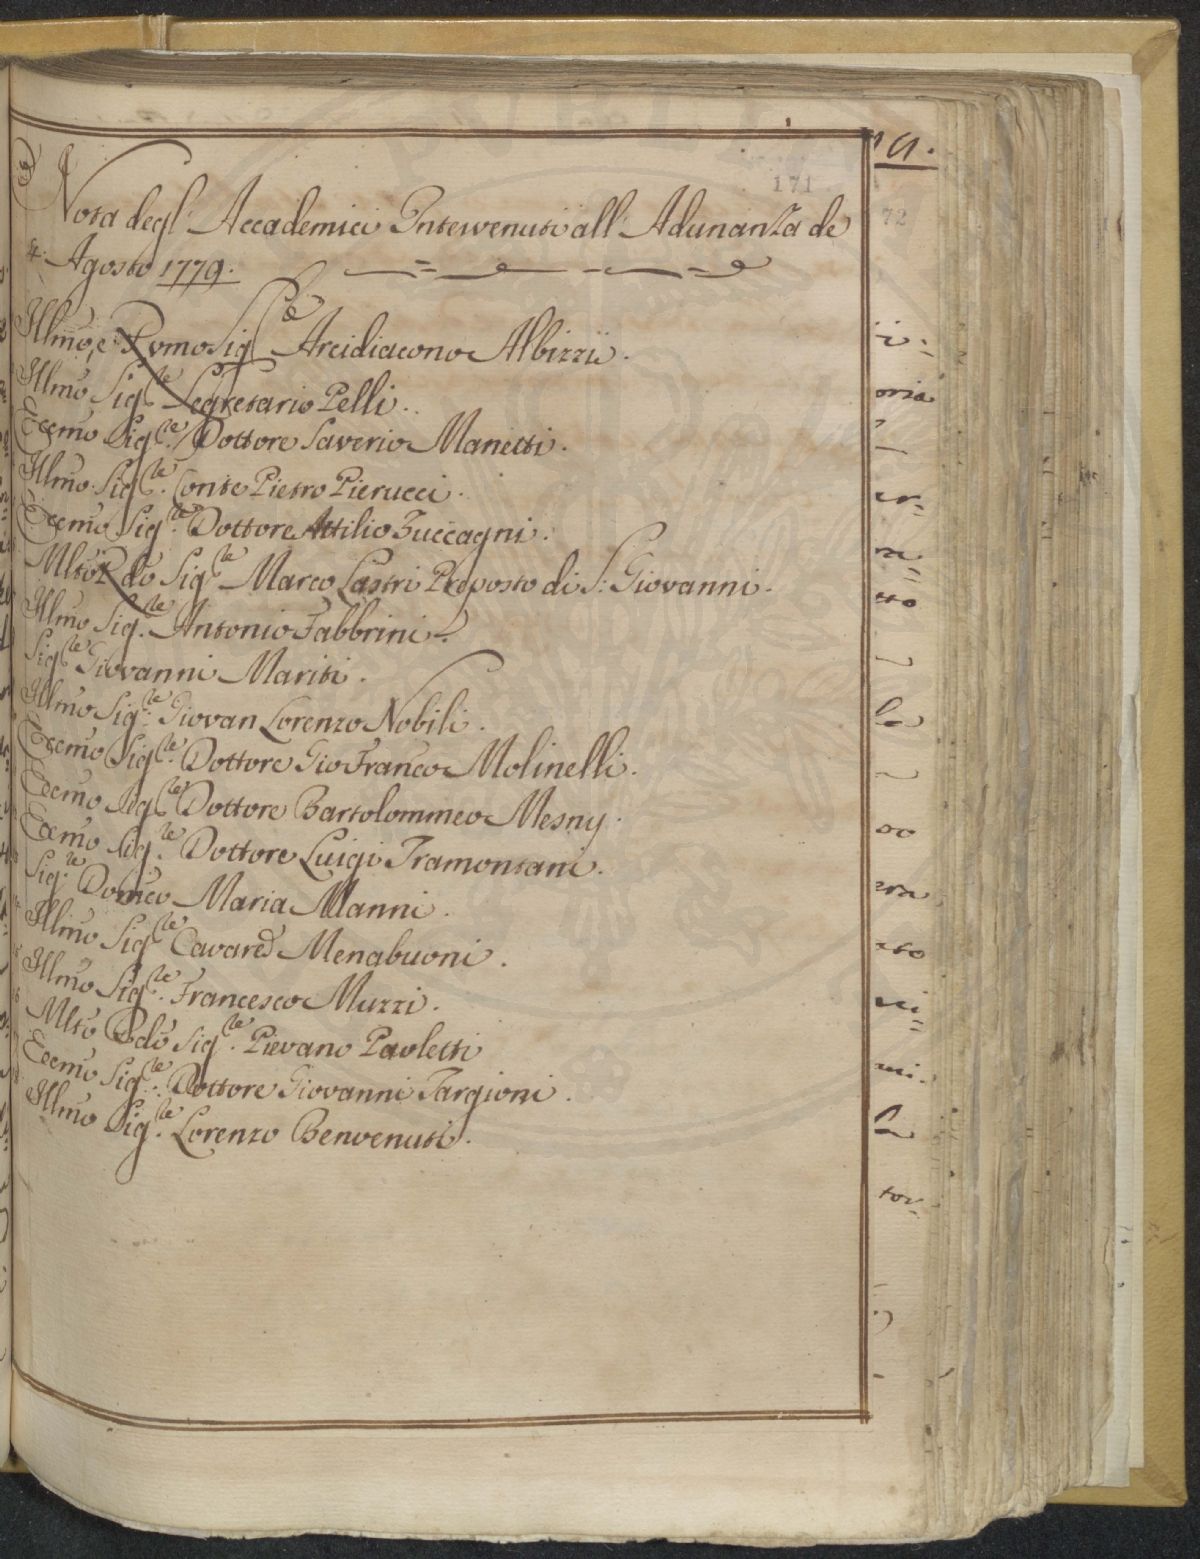 171.
72
Nota degl' Accademici Intervenuti all' Adunanza de
4. Agosto 1779.
Illmo, e Rvmo Sig.re Arcidiacono Albizzi.
Illmo Sig.re Segretario Pelli.
Eccmo Sig.re Dottore Saverio Manetti.
Illmo Sig.re Conte Pietro Pierucci.
Eccmo Sig.re Dottore Attilio Zuccagni.
Mlto Rdo Sig.re Marco Lastri Proposto di S. Giovanni.
Illmo Sig.re Antonio Fabbrini.
Sig.re Giovanni Mariti.
Illmo Sig.re Giovan Lorenzo Nobili.
Eccmo Sig.re Dottore Gio Franco Molinelli.
Eccmo Sig.re Dottore Bartolommeo Mesny.
Eccmo Sig.re Dottore Luigi Tramontani.
Sig.re Domco Maria Manni.
Illmo Sig.re Cavare Menabuoni.
Illmo Sig.re Francesco Muzzi.
Mlto Rdo Sig.re Pievano Paoletti
Eccmo Sig.re Dottore Giovanni Targioni.
Illmo Sig.re Lorenzo Benvenuti.